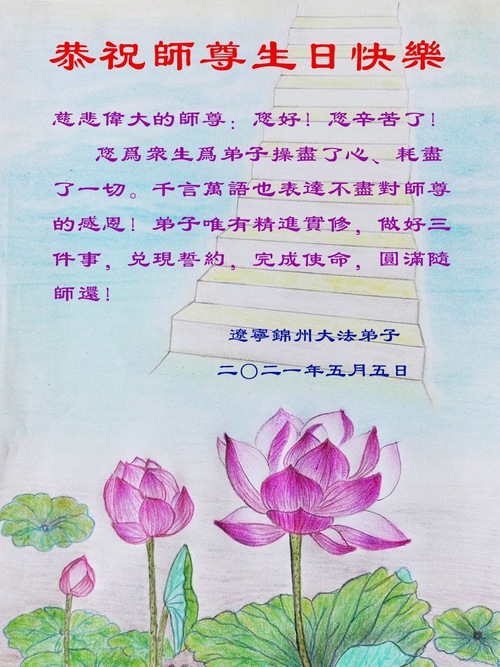 恭祝師尊生日快樂
慈悲偉大的師尊：您好！您辛苦了！
您爲衆生爲弟子操盡了心、耗盡
了一切。千言萬語也表達不盡對師尊
的感恩！弟子唯有精進實修，做好三
件事，兌現誓約，完成使命，圓滿隨
師還！
遼寧錦州大法弟子
二〇二一年五月五日